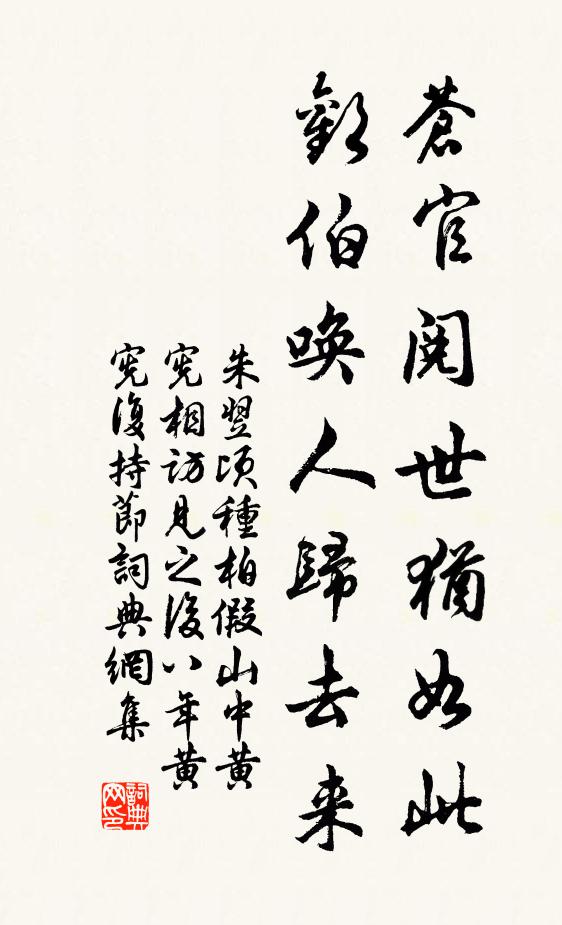 蒼官閱世猶如此
歡伯喚人歸去来
朱翌頃種柏假山中黃
憲相訪見之後八年黃
憲復持節詞典網集
詞典
网印